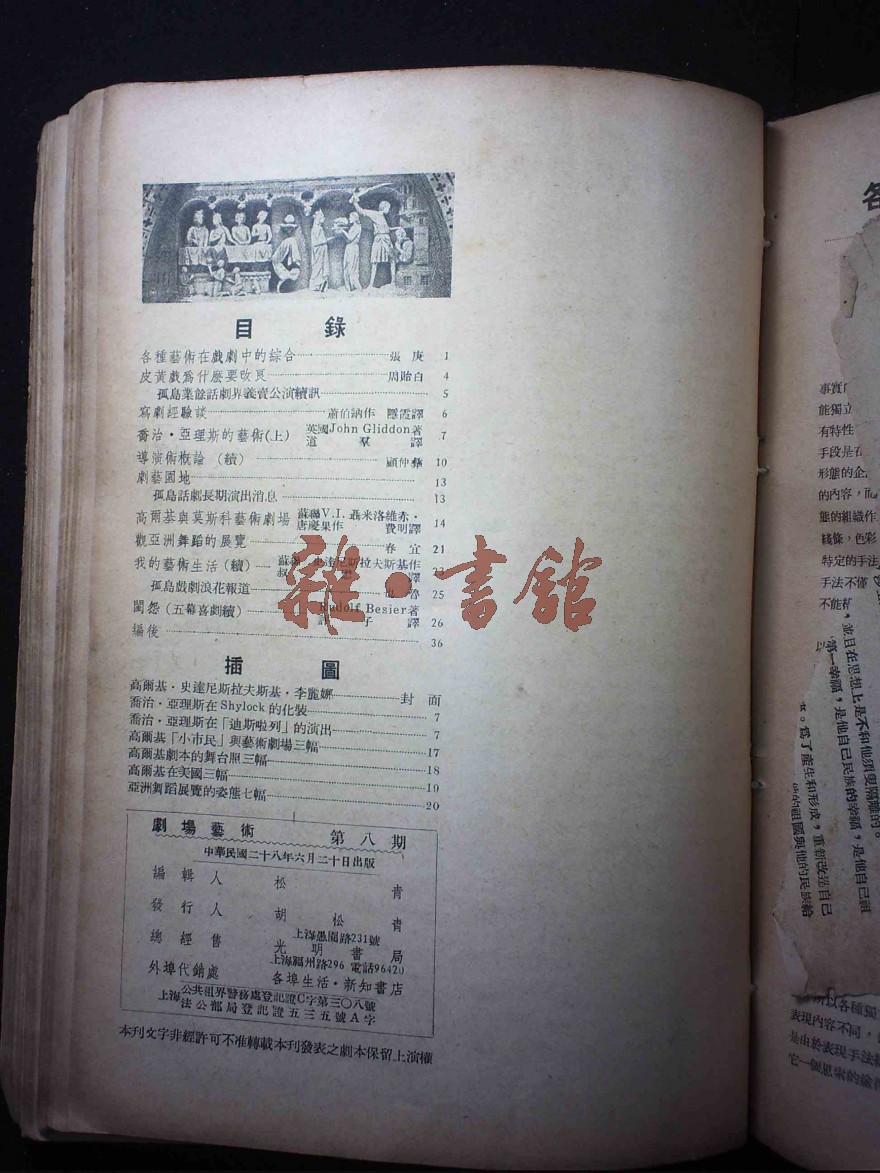 目 錄
各種藝術在戲劇中的綜合 張 庚 1
皮黃戲爲什麽要改良 周貽白 4
孤島業餘話劇界義賣公演續訊 5
寫劇經驗談 蕭伯納作 隱霞譯 6
喬治·亞理斯的藝術(上) 英國John Gliddon著 道 羣 譯 7
導演術概論 (續) 顧仲彝 10
劇藝園地 13
孤島話劇長期演出消息 13
高爾基與莫斯科藝術劇場 蘇聯V.I. 聶米洛維赤·唐慶果作 費明譯 14
觀亞洲舞蹈的展覽 春 宜 21
我的藝術生活(續) 蘇聯 史達尼斯拉夫斯基作 譯
孤島戲劇浪花報道 25
閨怨(五幕喜劇續) Rudolf Besier著 子 譯 26
編後 36
插 圖
高爾基·史達尼斯拉夫斯基·李麗娜 封 面
喬治·亞理斯在 Shylock 的化裝 7
喬治·亞理斯在「迪斯啦列」的演出 7
高爾基「小市民」與藝術劇場三幅 17
高爾基劇本的舞台照三幅 18
高爾基在美國三幅 19
亞洲舞蹈展覽的姿態七幅 20
劇場藝術 第八期
中華民國二十八年六月二十日出版
編輯人 松 青
發行人 胡松青
上海愚園路231號
總經售 光明書局
上海福州路296 電話96420
外埠代銷處 各埠生活·新知書店
公共租界警務處登記證C字第三〇八號
上海法公部局登記證五三五號A字
本刊文字非經許可不准轉載本刊發表之劇本保留上演權
雜·書館
各
能獨立
有特性
手段是
形態的企
的內容，
態的組織作
綫條，色彩
特定的手法
手法不僅
不能
，並且在思想上是不和他須更隔離的。
第一幸福，是他自己民族的幸福，是他自己祖
。爲了產生和形成，重新改造自己
的祖國與他的民族給
所以各種獨
表現內容不同，
是由於表現手法
它一個思索的